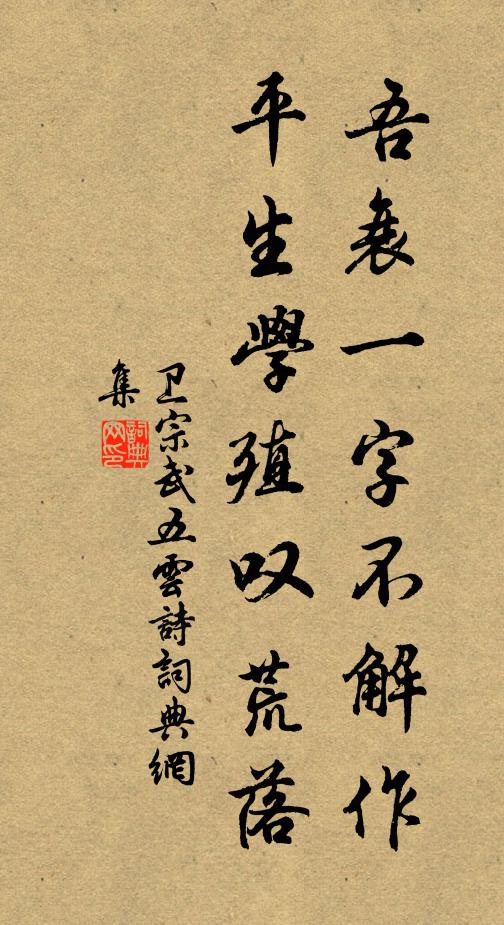 吾衰一字不解作
平生學殖叹荒落
卫宗武五雲詩詞典網
集
詞典網印